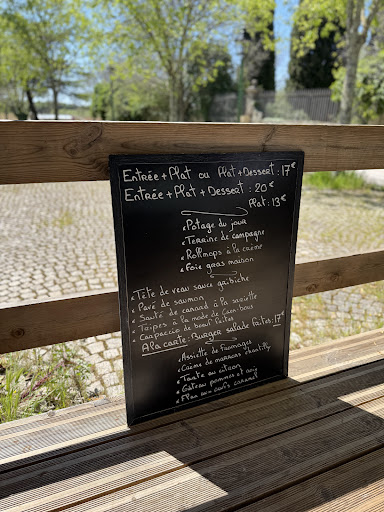 Entrée + Plat ou Plat + Dessert : 17€
Entrée + Plat + Dessert : 20€
Plat : 13€
Potage du jour
Terrine de campagne
Rollmops à la crème
Foie gras maison
Tête de veau sauce gribiche
Pavé de saumon
Sauté de canard à la sariette
Tripes à la mode de
Carpaccio de bœuf frites
A la carte : Burger salade frites : 17€
Assiette de fromages
Crème de marrons chantilly
Tarte au citron
Gâteau pommes et
Flan au caramel